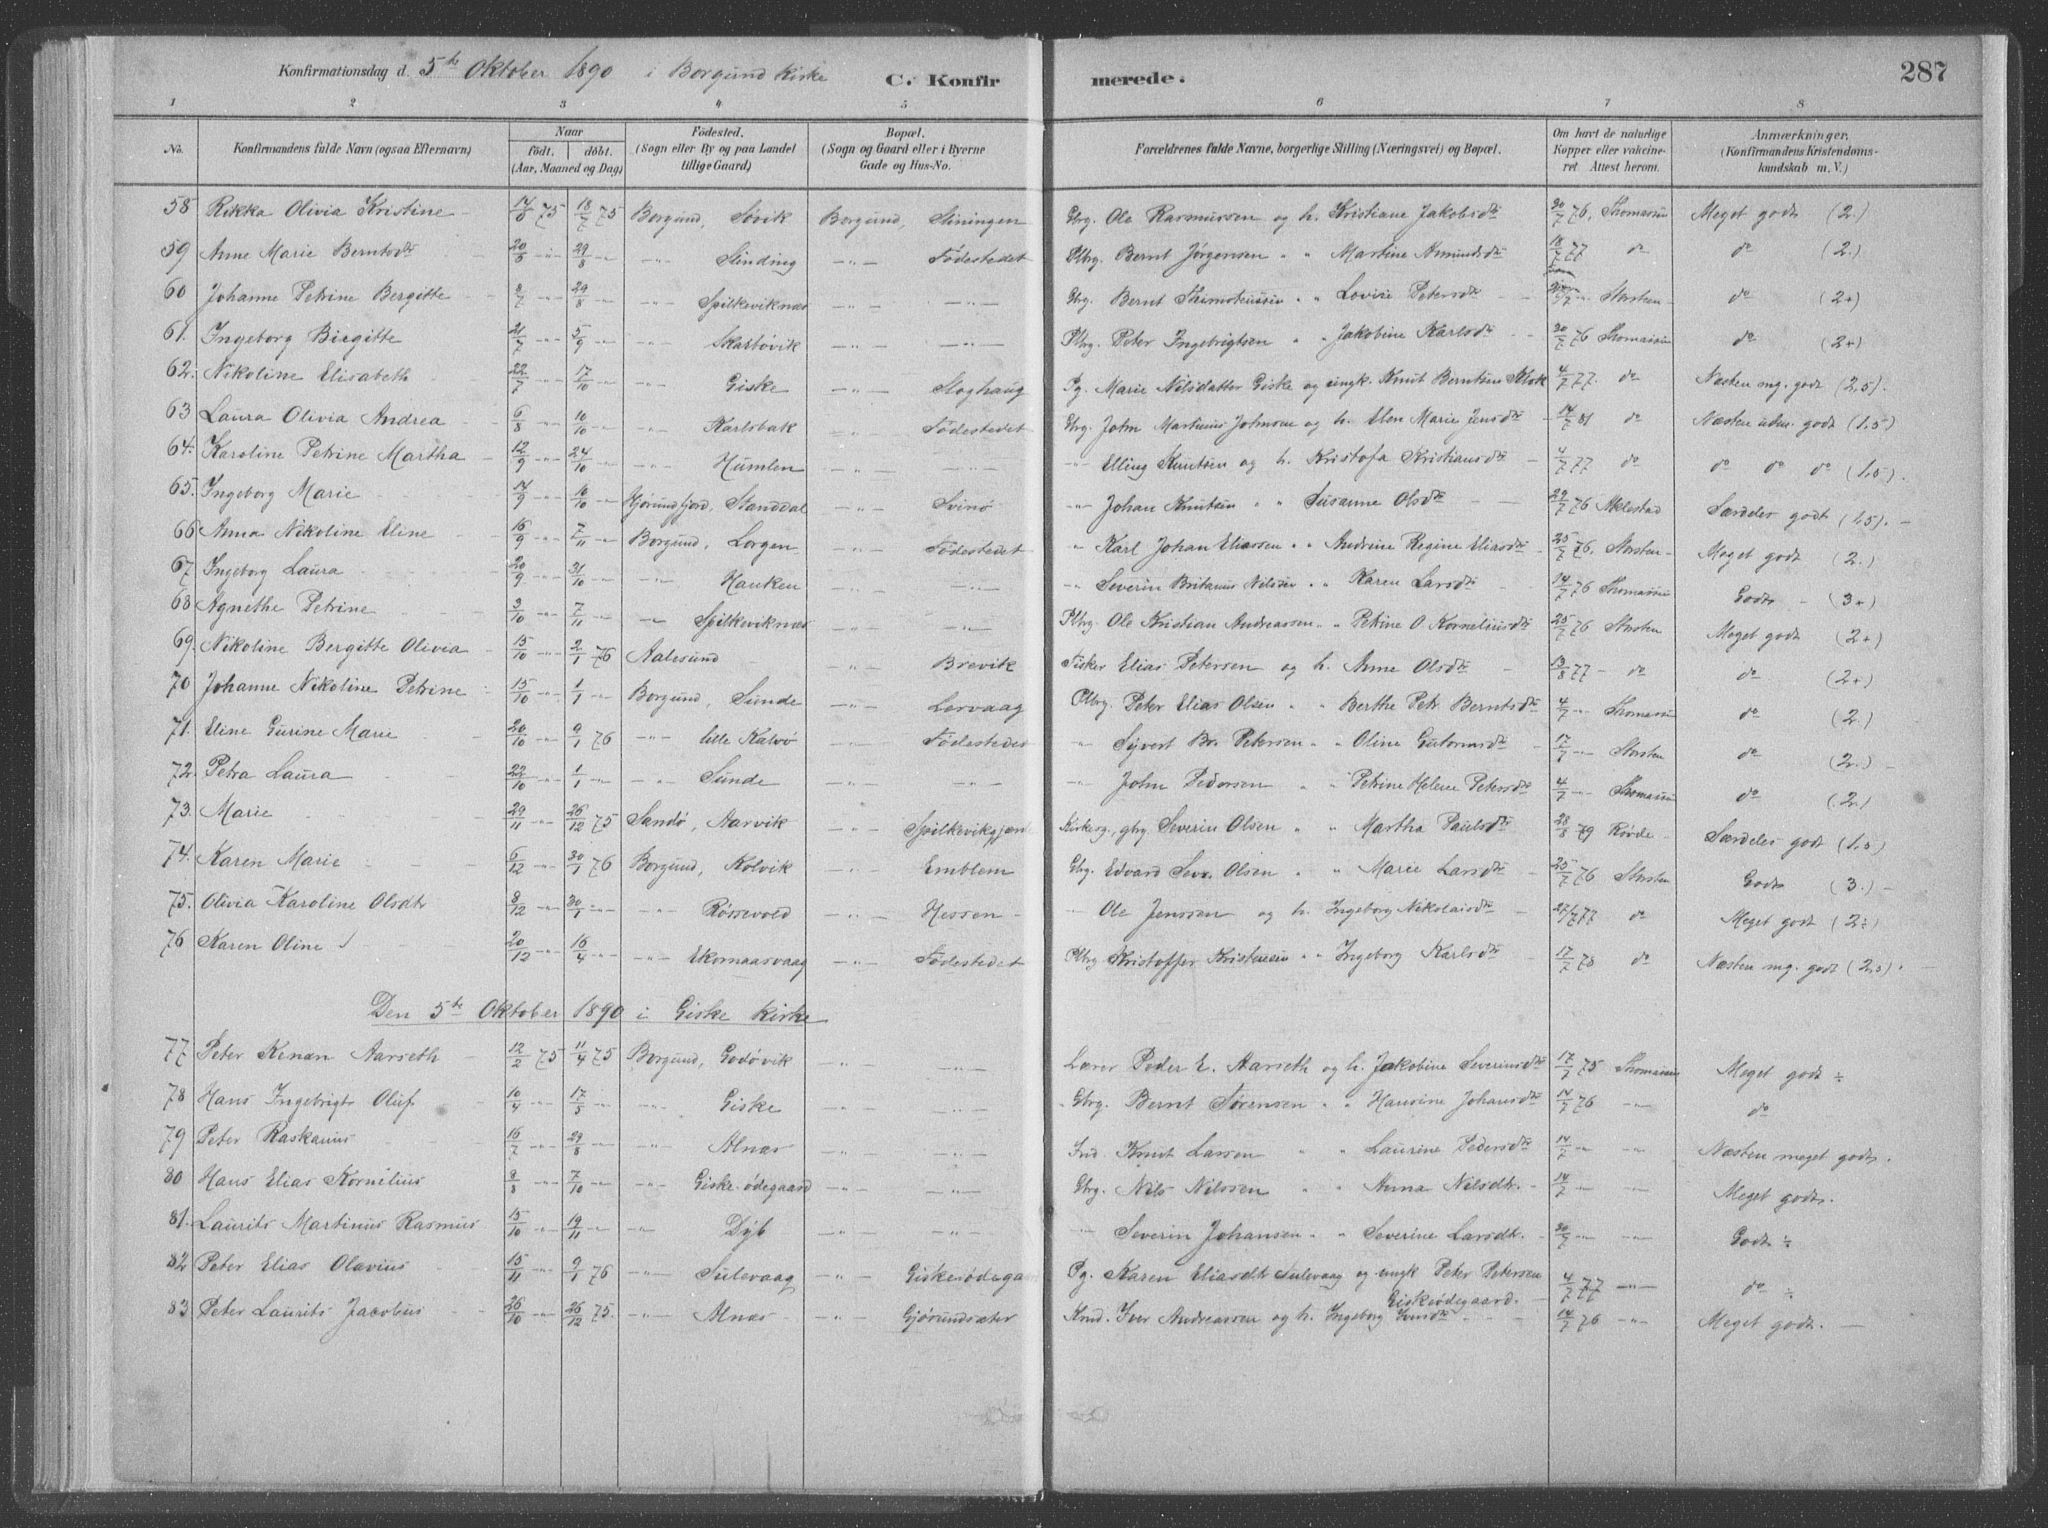 Konfirmationsdag d. 5te Oktober 1890 i Borgund Kirke C. Konfirmerede. 287
1 2 3 4 5 6 7 8
No. Konfirmandens fulde Navn (ogsaa Efternavn) Naar födt. döbt. (Aar, Maaned og Dag) Födested. (Sogn eller By og paa Landet tillige Gaard) Bopæl. (Sogn og Gaard eller i Byerne Gade og Hus-No. Forældrenes fulde Navne, borgerlige Stilling (Næringsvei) og Bopæl. Om havt de naturlige Kopper eller vaccineret Attest herom. Anmærkninger. (Konfirmandens Kristendomskundskab m. V.)
58 Rikka Olivia Kristine 14/6 75 18/7 75 Borgund, Søvik Borgund, Sliningen Gbrg. Ole Rasmussen og h. Kristiane Jakobsdtr 30/7 76, Thomassen Meget godt (2.)
59 Anne Marie Berntsdtr 20/6 -"- 29/8 -"- -"- Slinding -"- Födestedet Pbrg. Bernt Jørgensen " " Martine Amundsdtr 18/7 77 do do (2.)
60 Johanne Petrine Bergitte 8/7 -"- 29/8 -"- -"- Spilkeviknæs -"- -"- Gbrg. Bernt Thimoteussen " " Lovise Petersdtr Storsten do (2+)
61. Ingeborg Birgitte 21/7 -"- 5/9 -"- -"- Skarbøvik -"- -"- Pbrg. Peter Ingebrigtsen " " Jakobine Karlsdtr 30/7 76 Thomassen do (2+)
62. Nikoline Elisabeth 22/7 -"- 17/10 -"- -"- Giske -"- Sloghaug Pg. Marie Nilsdatter Giske og ungk. Knut Berntsen Alok 4/7 77. do Næsten mg. godt (2,5).
63 Laura Olivia Andrea 6/8 -"- 10/10 -"- -"- Karlsbak -"- Födestedet Gbrg. John Martinus Johnsen og h. Elen Marie Jensdtr 14/7 81 do Næsten udm. godt (1,5)
64. Karoline Petrine Martha 12/9 -"- 24/10 -"- -"- Humlen -"- -"- -"- Elling Knutsen og h. Kristofa Kristiansdtr 4/7 77 do do do do (1,5).
65. Ingeborg Marie 14/9 -"- 10/10 -"- Hjørundfjord, Standdal -"- Svinö -"- Johan Knutsen " " Susanne Olsdtr 29/7 76 Melestad Særdeles godt (1,5). -
66 Anna Nikoline Eline 16/9 -"- 7/11 -"- Borgund, Lorgen -"- Födestedet " Karl Johan Eliassen " " Andrine Regine Eliasdtr 25/7 76. Storsten Meget godt (2.)
67 Ingeborg Laura 20/9 -"- 31/10 -"- -"- Hauken -"- -"- Severin Britanus Nilssen " " Karen Larsdtr 14/7 76 Thomassen Godt (3+)
68 Agnethe Petrine 3/10 -"- 7/11 -"- -"- Spilkeviknæs -"- -"- Pbrg. Ole Kristian Andreassen " " Petrine O. Korneliusdtr 25/7 76 Storsten Meget godt (2+)
69. Nikoline Bergitte Olivia 15/10 -"- 2/1 76 Aalesund -"- Brevik Fisker Elias Petersen og h. Anne Olsdtr 13/8 77 - do do (2+)
70 Johanne Nikoline Petrine 15/10 -"- 1/1 -"- Borgund, Sunde -"- Lervaag Pbrg. Peter Elias Olsen " " Berthe Petr. Berntsdtr 4/7 -"- Thomassen do (2.)
71. Eline Gurine Marie 20/10 -"- 9/1 76 -"- lille Kalvö -"- Födestedet " Syvert Br. Petersen " " Oline Gutormsdtr 17/7 -"- Storsten do (2.) -
72. Petra Laura 22/10 -"- 1/1 -"- -"- Sunde -"- -"- John Pedersen " " Petrine Helene Petersdtr 4/7 -"- Thomassen do (2.)
73. Marie 29/11 -"- 26/12 75 Sandö, Aarvik -"- Spilkevikgjerd Kirkesg., gbrg Severin Olsen " " Martha Paulsdtr 28/8 79 Røvde Særdeles godt (1,5)
74. Karen Marie 6/12 -"- 30/1 76 Borgund, Kolvik -"- Emblem Gbrg. Edvard Sev. Olsen " " Marie Larsdtr 25/7 76 Storsten Godt (3.) -
75. Olivia Karoline Olsdtr 8/12 -"- 30/1 -"- -"- Røssevold -"- Hessen Ole Jenssen og h. Ingeborg Nikolaisdtr 27/7 77 do Meget godt (2÷)
76 Karen Oline 20/12 -"- 16/4 -"- -"- Ekornaasvaag -"- Födestedet Pbrg Kristoffer Kristensen " " Ingeborg Karlsdtr 17/7 78 do Næsten mg. godt (2,5).
Den 5te Oktober 1890 i Giske Kirke
77 Peter Kenan Aarseth 12/2 75 11/4 75 Borgund, Godøvik -"- -"- Lærer Peder E. Aarseth og h. Jakobine Severinsdtr 17/7 75 Thomassen Meget godt ÷
78 Hans Ingebrigt Oluf 10/4 -"- 17/5 -"- -"- Giske -"- -"- Gbrg. Bernt Sørensen " " Hansine Johansdtr 14/7 76 -"- do
79 Peter Raskanus 16/7 -"- 29/8 -"- -"- Alnæs -"- -"- Ind. Knut Larsen " " Laurine Pedersdtr 14/7 -"- -"- Næsten meget godt.
80 Hans Elias Kornelius 8/8 -"- 7/10 -"- Giske-ødegaard -"- -"- Gbrg. Nils Nilssen " " Anna Nilsdtr. 14/7 -"- -"- Meget godt.
81. Laurits Martinus Rasmus 15/10 -"- 19/11 -"- -"- Dyb -"- -"- -"- Severin Johansen " " Severine Larsdtr. 30/7 -"- -"- Godt ÷
82 Peter Elias Olavius 15/11 -"- 9/1 76 -"- Sulevaag -"- Giskeødegaard Pg. Karen Eliasdtr Sulevaag og ungk Peter Petersen 4/7 77 -"- do ÷
Giskeødegaard.
83 Peter Laurits Jacobus 26/10 -"- 26/12 75. -"- Alnæs -"- Gjørundsæter Knud. Iver Andreassen og h. Ingeborg Jensdtr 14/7 76 -"- Meget godt. -